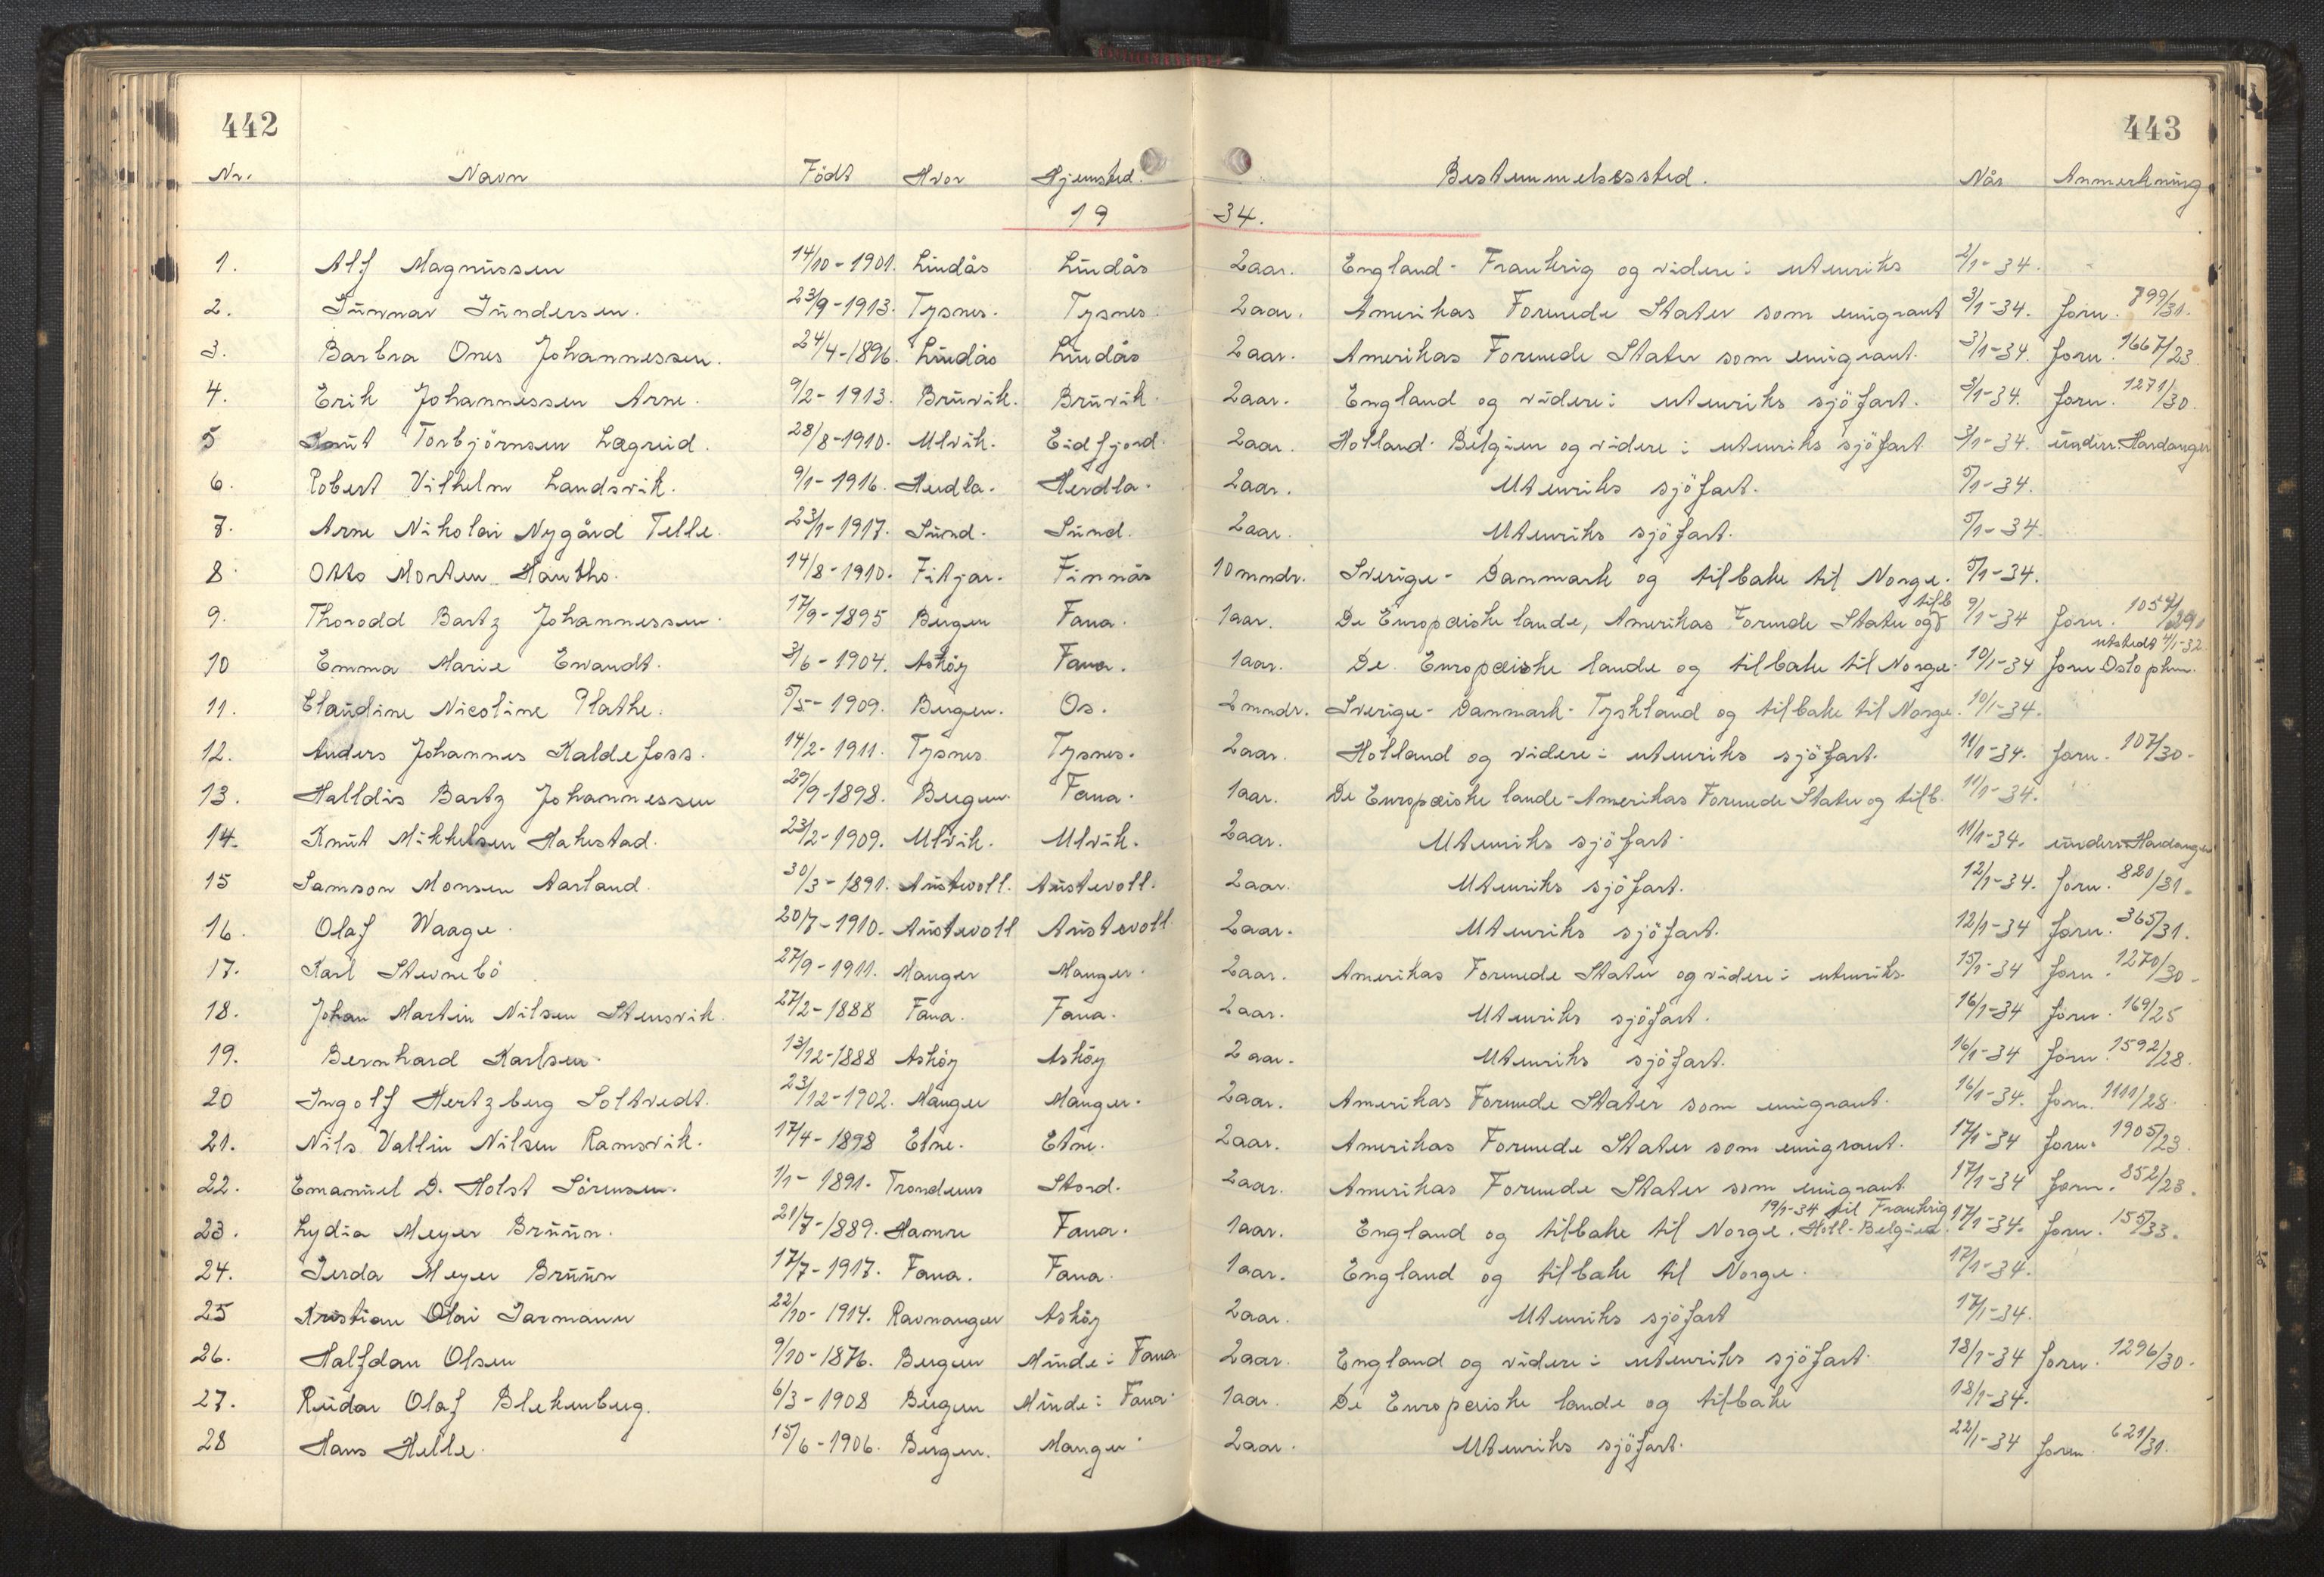 442
443
Nr. Navn Födt Hvor Hjemsted. Bestemmelsessted. Når Anmerkning
19 34.
1. Alf Magnussen 14/10-1901. Lindås Lindås 2aar. England - Frankrig og videre i utenriks 2/1-34.
2. Gunnar Gundersen. 23/9-1913. Tysnes. Tysnes 2aar. Amerikas Forenede Stater som emigrant 3/1-34. forn. 799/31.
3. Barbra Ones Johannessen. 24/4-1896. Lindås Lindås 2aar. Amerikas Forenede Stater som emigrant. 3/1-34. forn. 1667/23
4. Erik Johannessen Arne. 9/2-1913. Bruvik. Bruvik. 2aar. England og videre i utenriks sjöfart. 3/1-34. forn. 1271/30.
5 Knut Torbjörnsen Lægreid. 28/8-1910. Ulvik. Eidfjord. 2aar. Holland - Belgien og videre i utenriks sjöfart 3/1-34. underr. Hardanger
6. Robert Vilhelm Landsvik. 9/1-1916. Herdla. Herdla. 2aar. Utenriks sjöfart. 5/1-34.
7. Arne Nikolai Nygård Telle. 23/1-1917. Sund. Sund. 2aar. Utenriks sjöfart. 5/1-34.
8. Otto Morten Haukho. 14/8-1910. Fitjar. Finnås 10mndr. Sverige - Danmark og tilbake til Norge. 5/1-34.
tilb
9. Thorodd Bartz Johannessen. 17/9-1895 Bergen Fana. 1aar. De Europæiske lande, Amerikas Forende Stater og 9/1-34 forn. 1057/29
utstedt 4/1-32
10 Emma Marie Ewandt. 3/6-1904. Askøy Fana. 1aar. De Europæiske lande og tilbake til Norge. 10/1-34 forn Oslo pkm.
11. Claudine Nicoline Plathe. 5/5-1909. Bergen. Os. 2mndr. Sverige - Danmark - Tyskland og tilbake til Norge. 10/1-34.
12. Anders Johannes Kaldefoss. 14/2-1911. Tysnes Tysnes. 2aar. Holland og videre i utenriks sjöfart. 11/1-34. forn. 107/30.
13. Halldis Bartz Johannessen 29/9-1898. Bergen. Fana. 1aar. De Europæiske lande - Amerikas Forenede Stater og tilb. 11/1-34.
14. Knut Mikkelsen Hakestad. 23/2-1909. Ulvik. Ulvik. 2aar. Utenriks sjöfart. 11/1-34. underr. Hardanger
15 Samson Monsen Aarland. 30/3-1891. Austevoll. Austevoll. 2aar. Utenriks sjöfart. 12/1-34. forn. 820/31.
16. Olaf Waage. 20/7-1910. Austevoll Austevoll 2aar. Utenriks sjöfart. 12/1-34 forn. 365/31.
17. Karl Stevnebö. 27/9-1911. Manger Manger. 2aar. Amerikas Forenede Stater og videre i utenriks. 15/1-34 forn. 1270/30.
18. Johan Martin Nilsen Stensvik. 27/2-1888 Fana. Fana. 2aar. Utenriks sjöfart. 16/1-34 forn. 169/25
19. Bernhard Karlsen. 13/12-1888 Askøy Askøy 2aar. Utenriks sjöfart. 16/1-34 forn. 1592/28.
20 Ingolf Hertzberg Soltvedt. 23/12-1902. Manger Manger. 2aar. Amerikas Forenede Stater som emigrant. 16/1-34. forn. 1111/28.
21. Nils Vallin Nilsen Ramsvik. 17/4-1898 Etne. Etne. 2aar. Amerikas Forenede Stater som emigrant. 17/1-34 forn. 1905/23.
22. Emanuel D. Holst Sörensen. 1/1-1891. Trondens Stord. 2aar. Amerikas Forenede Stater som emigrant 17/1-34 forn. 852/23.
19/1-34 til Frankrig
23. Lydia Meyer Bruun. 21/7-1889. Hamre Fana. 1aar. England og tilbake til Norge. Holl-Belgien. 17/1-34. forn. 155/33.
24. Gerda Meyer Bruun 17/7-1917. Fana. Fana. 1aar. England og tilbake til Norge. 17/1-34.
25 Kristian Olai Garmann 22/10-1914. Ravnanger Askøy 2aar. Utenriks sjöfart 17/1-34.
26. Halfdan Olsen 9/10-1876. Bergen Minde i Fana. 2aar. England og videre i utenriks sjöfart. 18/1-34 forn. 1296/30.
27. Reidar Olaf Blekenberg. 6/3-1908 Bergen Minde i Fana. 1aar. De Europæiske lande og tilbake 18/1-34.
28 Hans Helle. 15/6-1906. Bergen. Manger. 2aar. Utenriks sjöfart. 22/1-34 forn. 621/31.